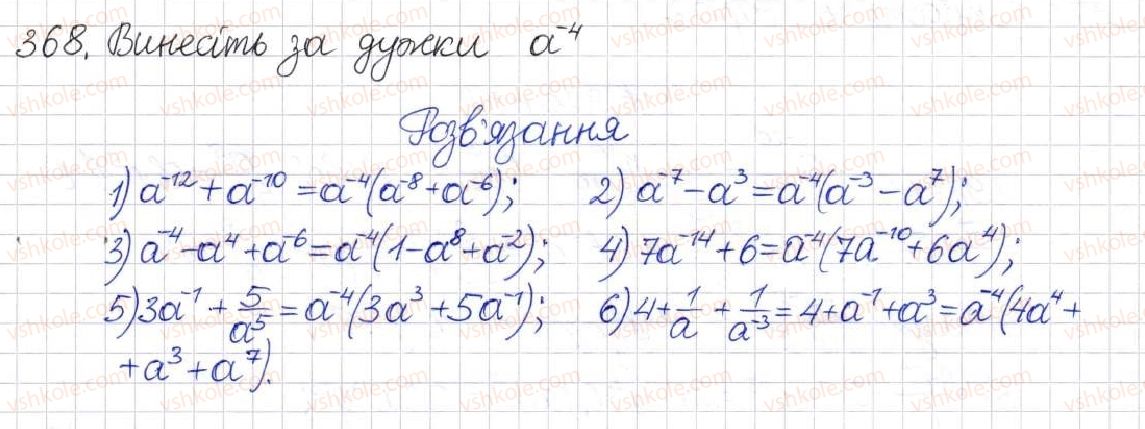 368. Винесіть за дужки a⁻⁴
Розв'язання
1) a⁻¹² + a⁻¹⁰ = a⁻⁴(a⁻⁸ + a⁻⁶); 2) a⁻⁷ − a³ = a⁻⁴(a⁻³ − a⁷);
3) a⁻⁴ − a⁴ + a⁻⁶ = a⁻⁴(1 − a⁸ + a⁻²); 4) 7a⁻¹⁴ + 6 = a⁻⁴(7a⁻¹⁰ + 6a⁴);
5) 3a⁻¹ + 5/a⁵ = a⁻⁴(3a³ + 5a⁻¹); 6) 4 + 1/a + 1/a⁻³ = 4 + a⁻¹ + a³ = a⁻⁴(4a⁴ +
+ a³ + a⁷).
vshkole.com